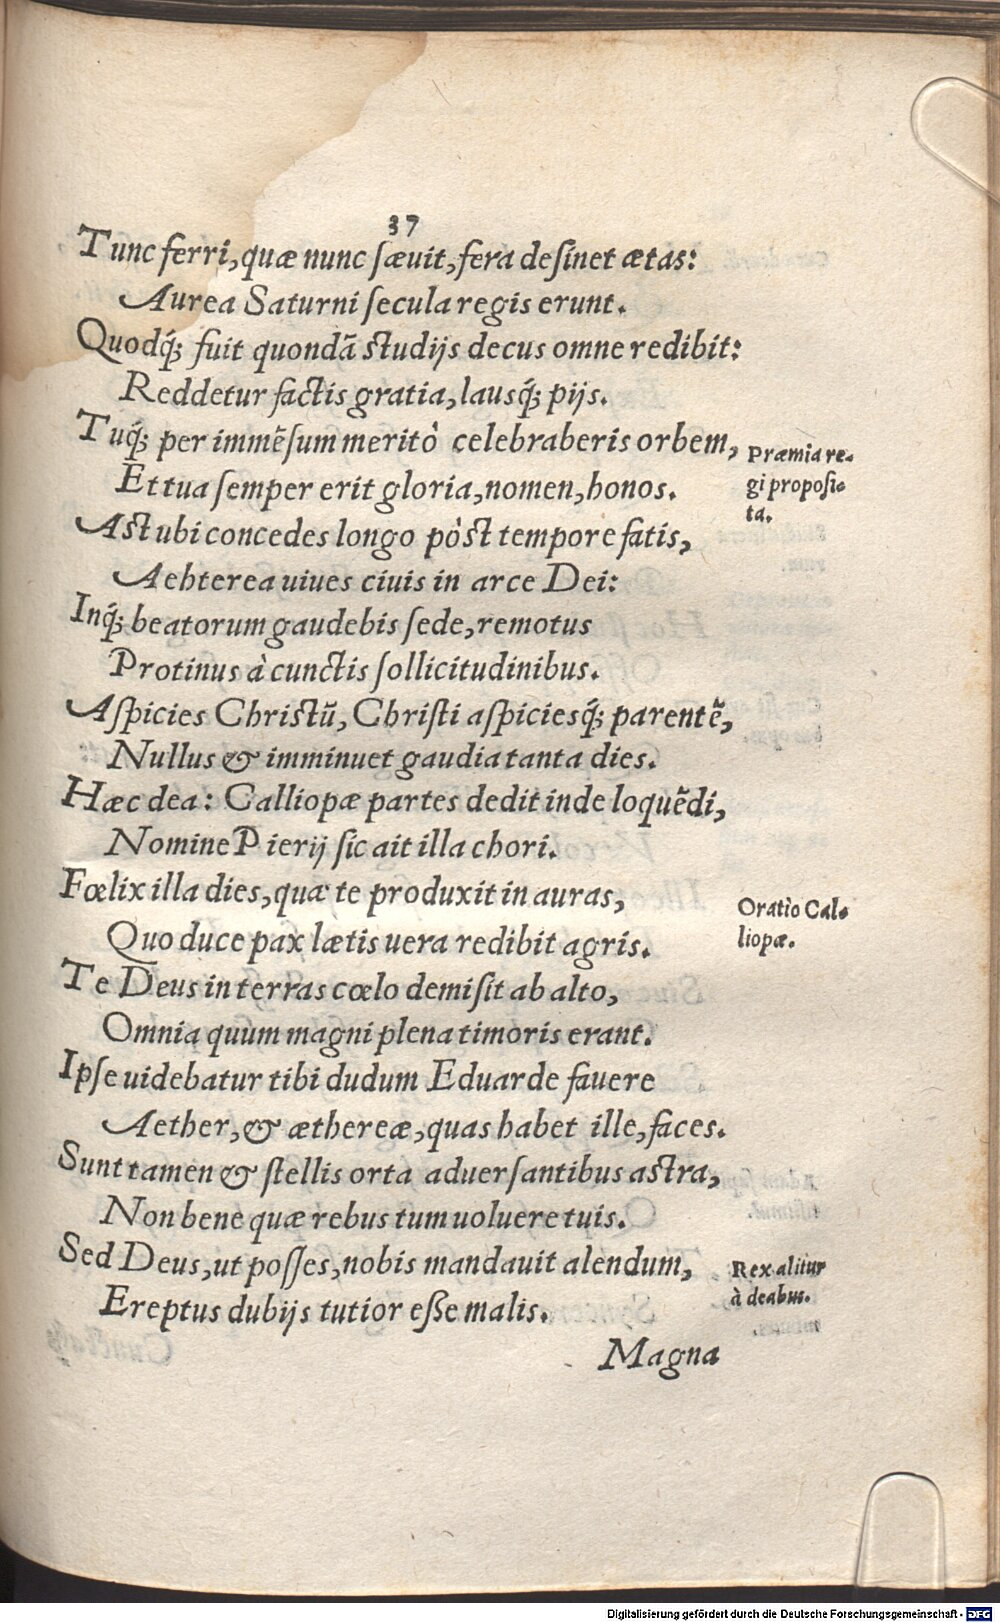 37
Tunc ferri, quæ nunc sæuit, fera desinet ætas:
Aurea Saturni secula regis erunt.
Quodq́; fuit quondã studijs decus omne redibit:
Reddetur factis gratia, lausq́; pijs.
Tuq́; per immẽsum meritò celebraberis orbem,
Et tua semper erit gloria, nomen, honos.
Præmia re-
gi proposi-
ta.
Ast ubi concedes longo pòst tempore fatis,
Aehterea uiues ciuis in arce Dei:
Inq́; beatorum gaudebis sede, remotus
Protinus à cunctis sollicitudinibus.
Aspicies Christũ, Christi aspiciesq́; parentẽ,
Nullus & imminuet gaudia tanta dies.
Hæc dea: Calliopæ partes dedit inde loquẽdi,
Nomine Pierij sic ait illa chori.
Fœlix illa dies, quæ te produxit in auras,
Quo duce pax lætis uera redibit agris.
Oratio Cal-
liopæ.
Te Deus in terras cœlo demisit ab alto,
Omnia quum magni plena timoris erant.
Ipse uidebatur tibi dudum Eduarde fauere
Aether, & æthereæ, quas habet ille, faces.
Sunt tamen & stellis orta aduersantibus astra,
Non bene quæ rebus tum uoluere tuis.
Sed Deus, ut posses, nobis mandauit alendum,
Ereptus dubijs tutior esse malis.
Rex alitur
à deabus.
Magna
Digitalisierung gefördert durch die Deutsche Forschungsgemeinschaft - DFG